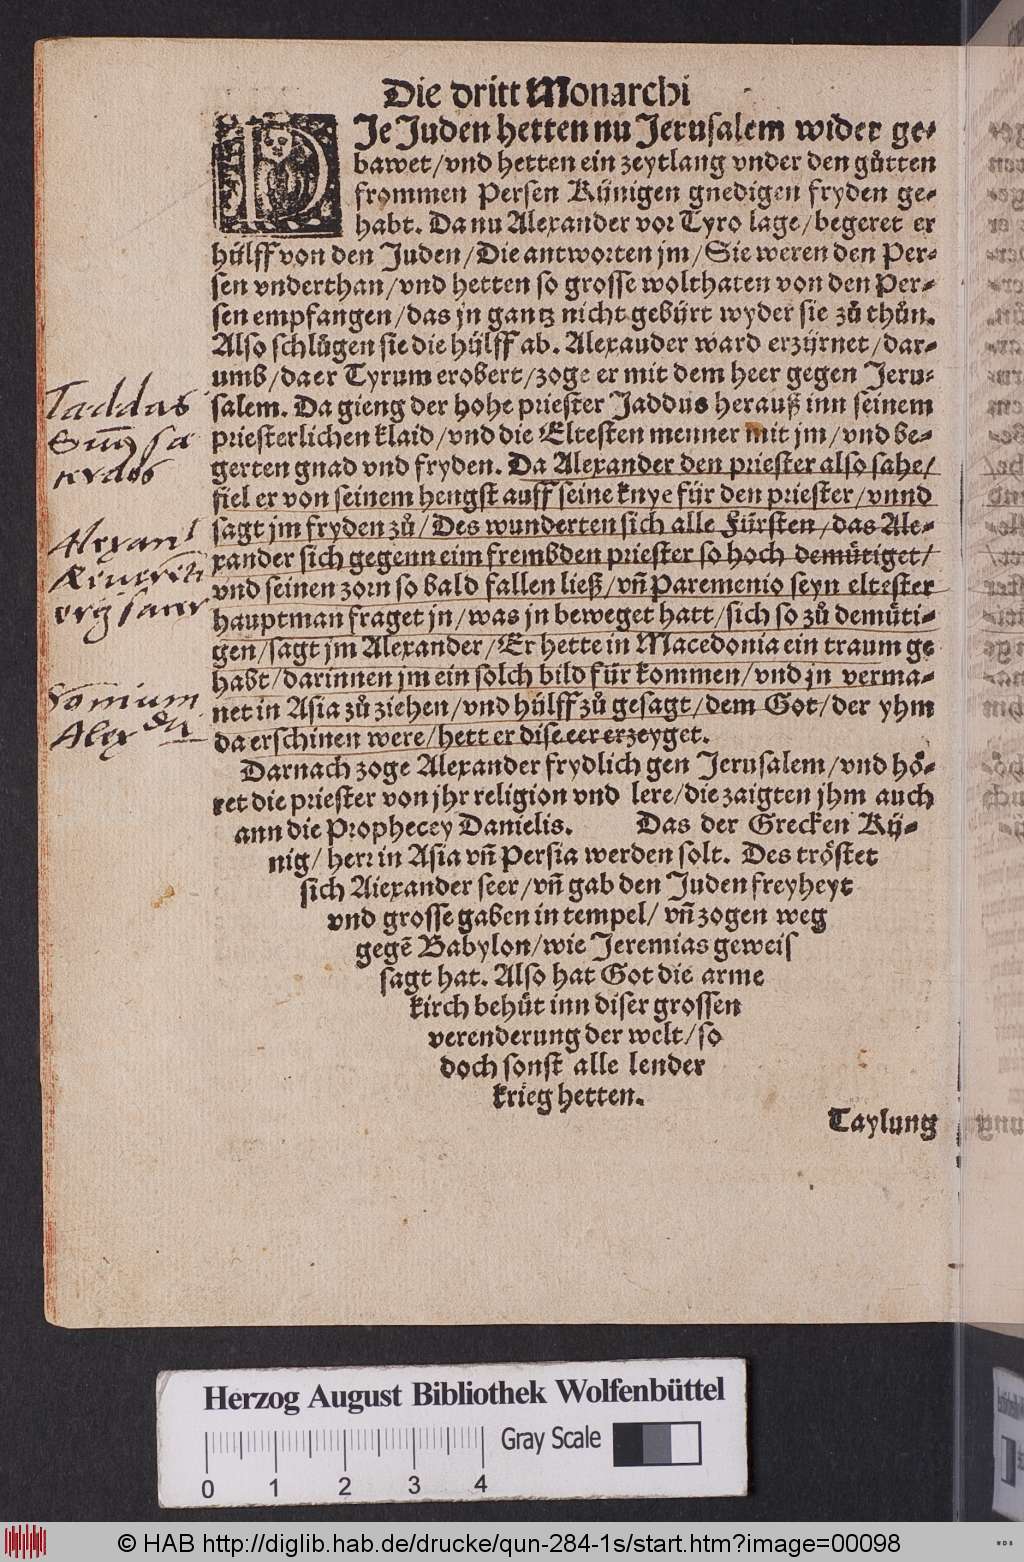 Die dritt Monarchi
DJe Juden hetten nu Jerusalem wider ge-
bawet/vnd hetten ein zeytlang vnder den guͦtten
frommen Persen Künigen gnedigen fryden ge-
habt. Da nu Alexander vor Tyro lage/begeret er
hülff von den Juden/Die antworten jm/Sie weren den Per-
sen vnderthan/vnd hetten so grosse wolthaten von den Per-
sen empfangen/das jn gantz nicht gebürt wyder sie zuͦ thuͦn.
Also schluͦgen sie die hülff ab. Alexauder ward erzürnet/dar-
umb/da er Tyrum erobert/zoge er mit dem heer gegen Jeru-
salem. Da gieng der hohe priester Jaddus herauß inn seinem
priesterlichen klaid/vnd die Eltesten menner mit jm/vnd be-
gerten gnad vnd fryden. Da Alexander den priester also sahe/
fiel er von seinem hengst auff seine knye für den priester/vnnd
sagt jm fryden zuͦ/Des wunderten sich alle Fürsten/das Ale-
xander sich gegenn eim frembden priester so hoch demütiget/
vnd seinen zorn so bald fallen ließ/vñ Paremenio seyn eltester
hauptman fraget jn/was jn beweget hatt/sich so zuͦ demüti-
gen/sagt jm Alexander/Er hette in Macedonia ein traum ge
habt/darinnen jm ein solch bild für kommen/vnd jn verma-
net in Asia zuͦ ziehen/vnd hülff zuͦ gesagt/dem Got/der yhm
da erschinen were/hett er dise eer erzeyget.
Darnach zoge Alexander frydlich gen Jerusalem/vnd hö-
ret die priester von jhr religion vnd lere/die zaigten jhm auch
ann die Prophecey Danielis. Das der Grecken Kü-
nig/herr in Asia vñ Persia werden solt. Des tröstet
sich Aiexander seer/vñ gab den Juden freyheyt
vnd grosse gaben in tempel/vñ zogen weg
gegẽ Babylon/wie Jeremias geweis
sagt hat. Also hat Got die arme
kirch behüt inn diser grossen
verenderung der welt/so
doch sonst alle lender
krieg hetten.
Taylung
Iaddas
Alexan
Somium
Alex
Herzog August Bibliothek Wolfenbüttel
Gray Scale
0 1 2 3 4
© HAB http://diglib.hab.de/drucke/qun-284-1s/start.htm?image=00098